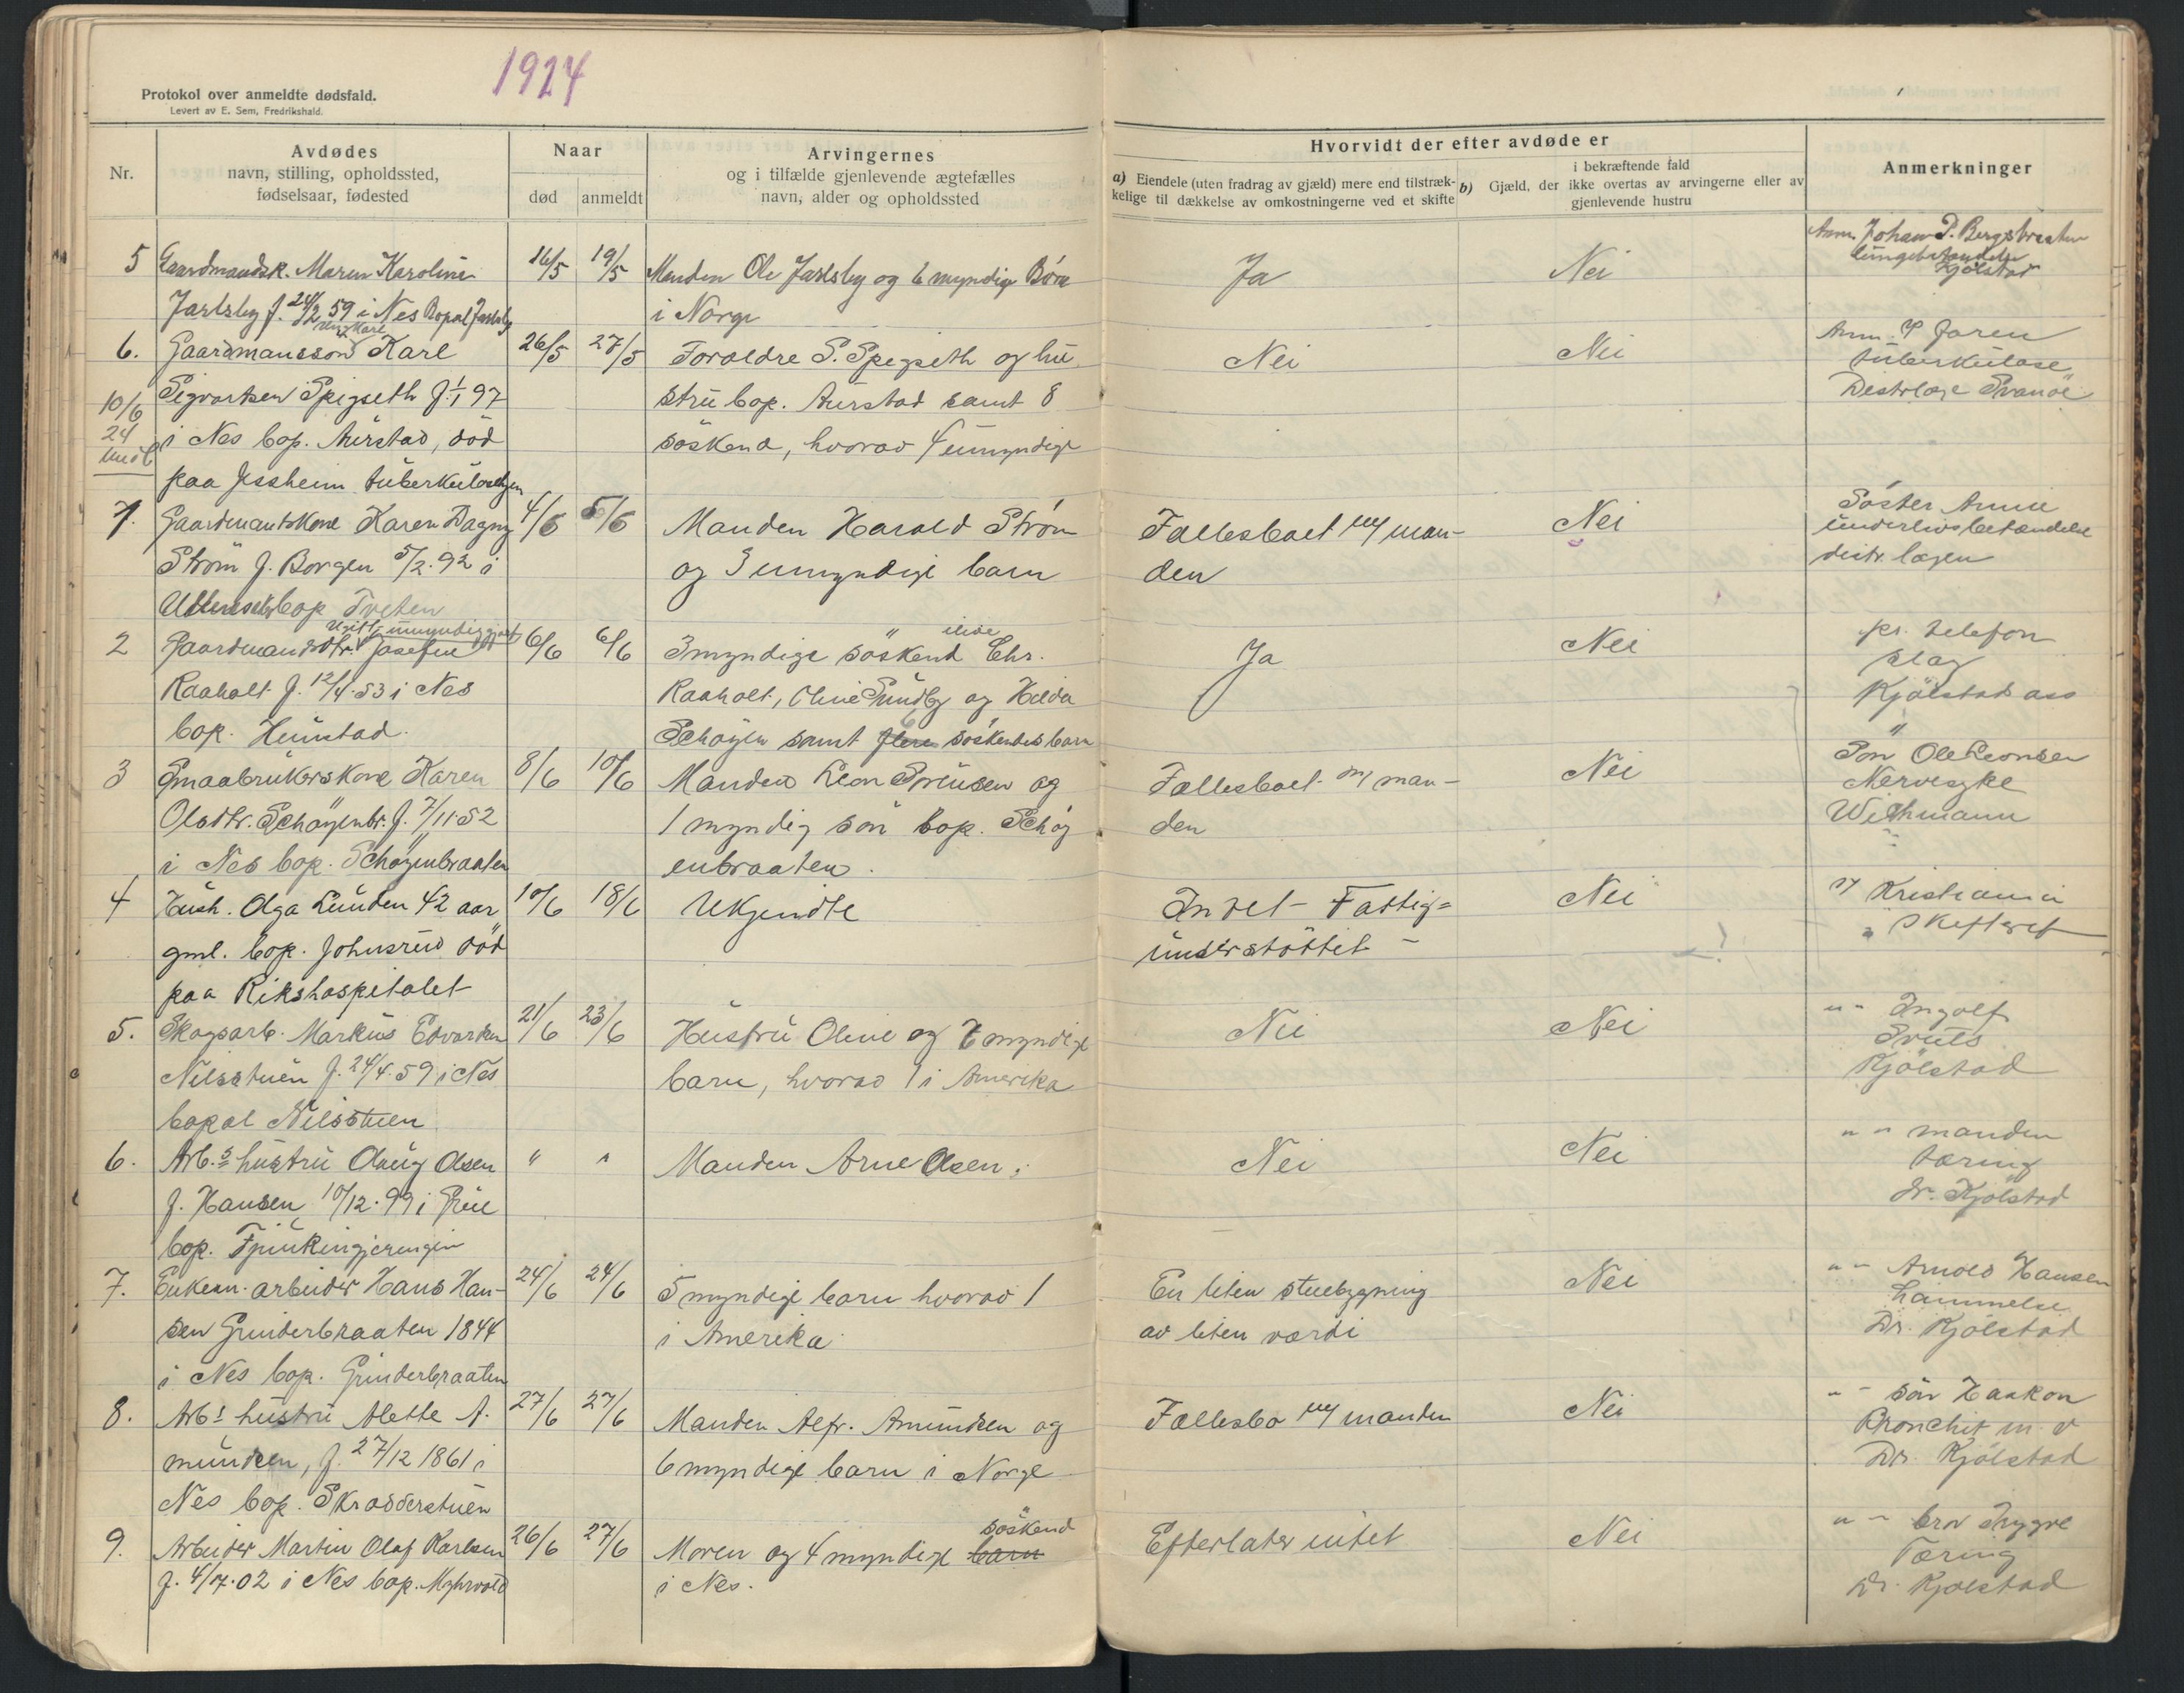 1924
Protokol over anmeldte dødsfald.
Levert av E. Sem, Fredrikshald.
Nr.
Avdødes
navn, stilling, opholdssted,
fødselsaar, fødested
Naar
død
anmeldt
Arvingernes
og i tilfælde gjenlevende ægtefælles
navn, alder og opholdssted
Hvorvidt der efter avdøde er
a) Eiendele (uten fradrag av gjæld) mere end tilstræk-
kelige til dækkelse av omkostningerne ved et skifte
i bekræftende fald
b) Gjæld, der ikke overtas av arvingerne eller av
gjenlevende hustru
Anmerkninger
5 Gaardmandsk. Maren Karoline 16/5 19/5 Manden Ole Jarlsby og 6 myndige Börn Ja Nei Anm. Johan P. Bergsbraaten
Jarlsby f. 24/2 59 i Nes Bopæl Jarlsby i Norge lungebetændelse
Kjölstad
Ungkarl
6. Gaardmanssön Karl 26/5 27/5 Forældre S. Spigseth og hu- Nei Nei Anm. Faren
Sigvartsen Spigseth f. 1/1 97 stru bop. Aurstad samt 8 tuberkulose
10/6 Distrlæge Svanöe
24 i Nes bop. Aurstad, död söskend, hvorav 4 umyndige
paa Jessheim tuberkulosehjem
1. Gaardmandskone Karen Dagny 4/6 5/6 Manden Harald Ström Fællesboet m/ man- Nei Söster Annie
Ström f. Borgen 5/2. 92 i og 3 umyndige barn den underlivsbetændelse
distr. lægen
Ullensaker bop Tveten
Ugift, umyndiggjort
2 Gaardmandsdtr. Josefine 6/6 6/6 3 myndige söskend Chr. Ja Nei pr. telefon
Raaholt f. 12/4. 53 i Nes Raaholt, Oline Sundby og Hilda slag
Kjölstad ass
bop. Hunstad. Schöyen samt flere söskendebarn
3 Smaabrukerskone Karen 8/6 10/6 Manden Leon Svensen og Fællesboet m/ man- Nei Sön Ole Leonsen
Olsdtr. Schöyenbr. f. 7/11. 52 1 myndig sön bop. Schöy den Nervesyke
i Nes bop. Schöyenbraaten enbraaten. Withmann
4 Hush. Olga Lunden 42 aar 10/6 18/6 Ukjendte Intet - Fattig= Nei Kristiania
gml. bop. Johnsrud död understöttet - Skifteret
paa Rikshospitalet
5. Skogsarb. Markus Edvardsen 21/6 23/6 Hustru Oline og 7 myndige Nei Nei " - Ingolf
Nilsstuen f. 24/4. 59 i Nes barn, hvorav 1 i Amerika Kjölstad
bopæl Nilsstuen
6. Arb.s hustru Olaug Olsen " " Manden Arne Olsen. Nei Nei " " manden
f. Hansen 10/12. 99 i Grue tæring
bop. dr. Kjölstad
7. Enkem. arbeider Hans Han- 24/6 24/6 5 myndige barn hvorav 1 En liten stuebygning Nei " - Arnold Hansen
sen Grinderbraaten 1844 i Amerika. av liten værdi Lammelse
i Nes bop. Grinderbraaten Dr. Kjölstad
8. Arb.s hustru Alette A- 27/6 27/6 Manden Alfr. Amundsen og Fællesbo m/ manden Nei " - sön Haakon
mundsen, f. 27/12 1861 i 6 myndige barn i Norge Bronchit m. v
Nes bop. Skrædderstuen Dr. Kjölstad
söskend
9. Arbeider Martin Olaf Karlsen 26/6 27/6 Moren og 4 myndige barn Efterlater intet Nei " - bror Trygve
f. 4/7. 02 i Nes bop. Myhrvold i Nes. Tæring
Dr. Kjölstad